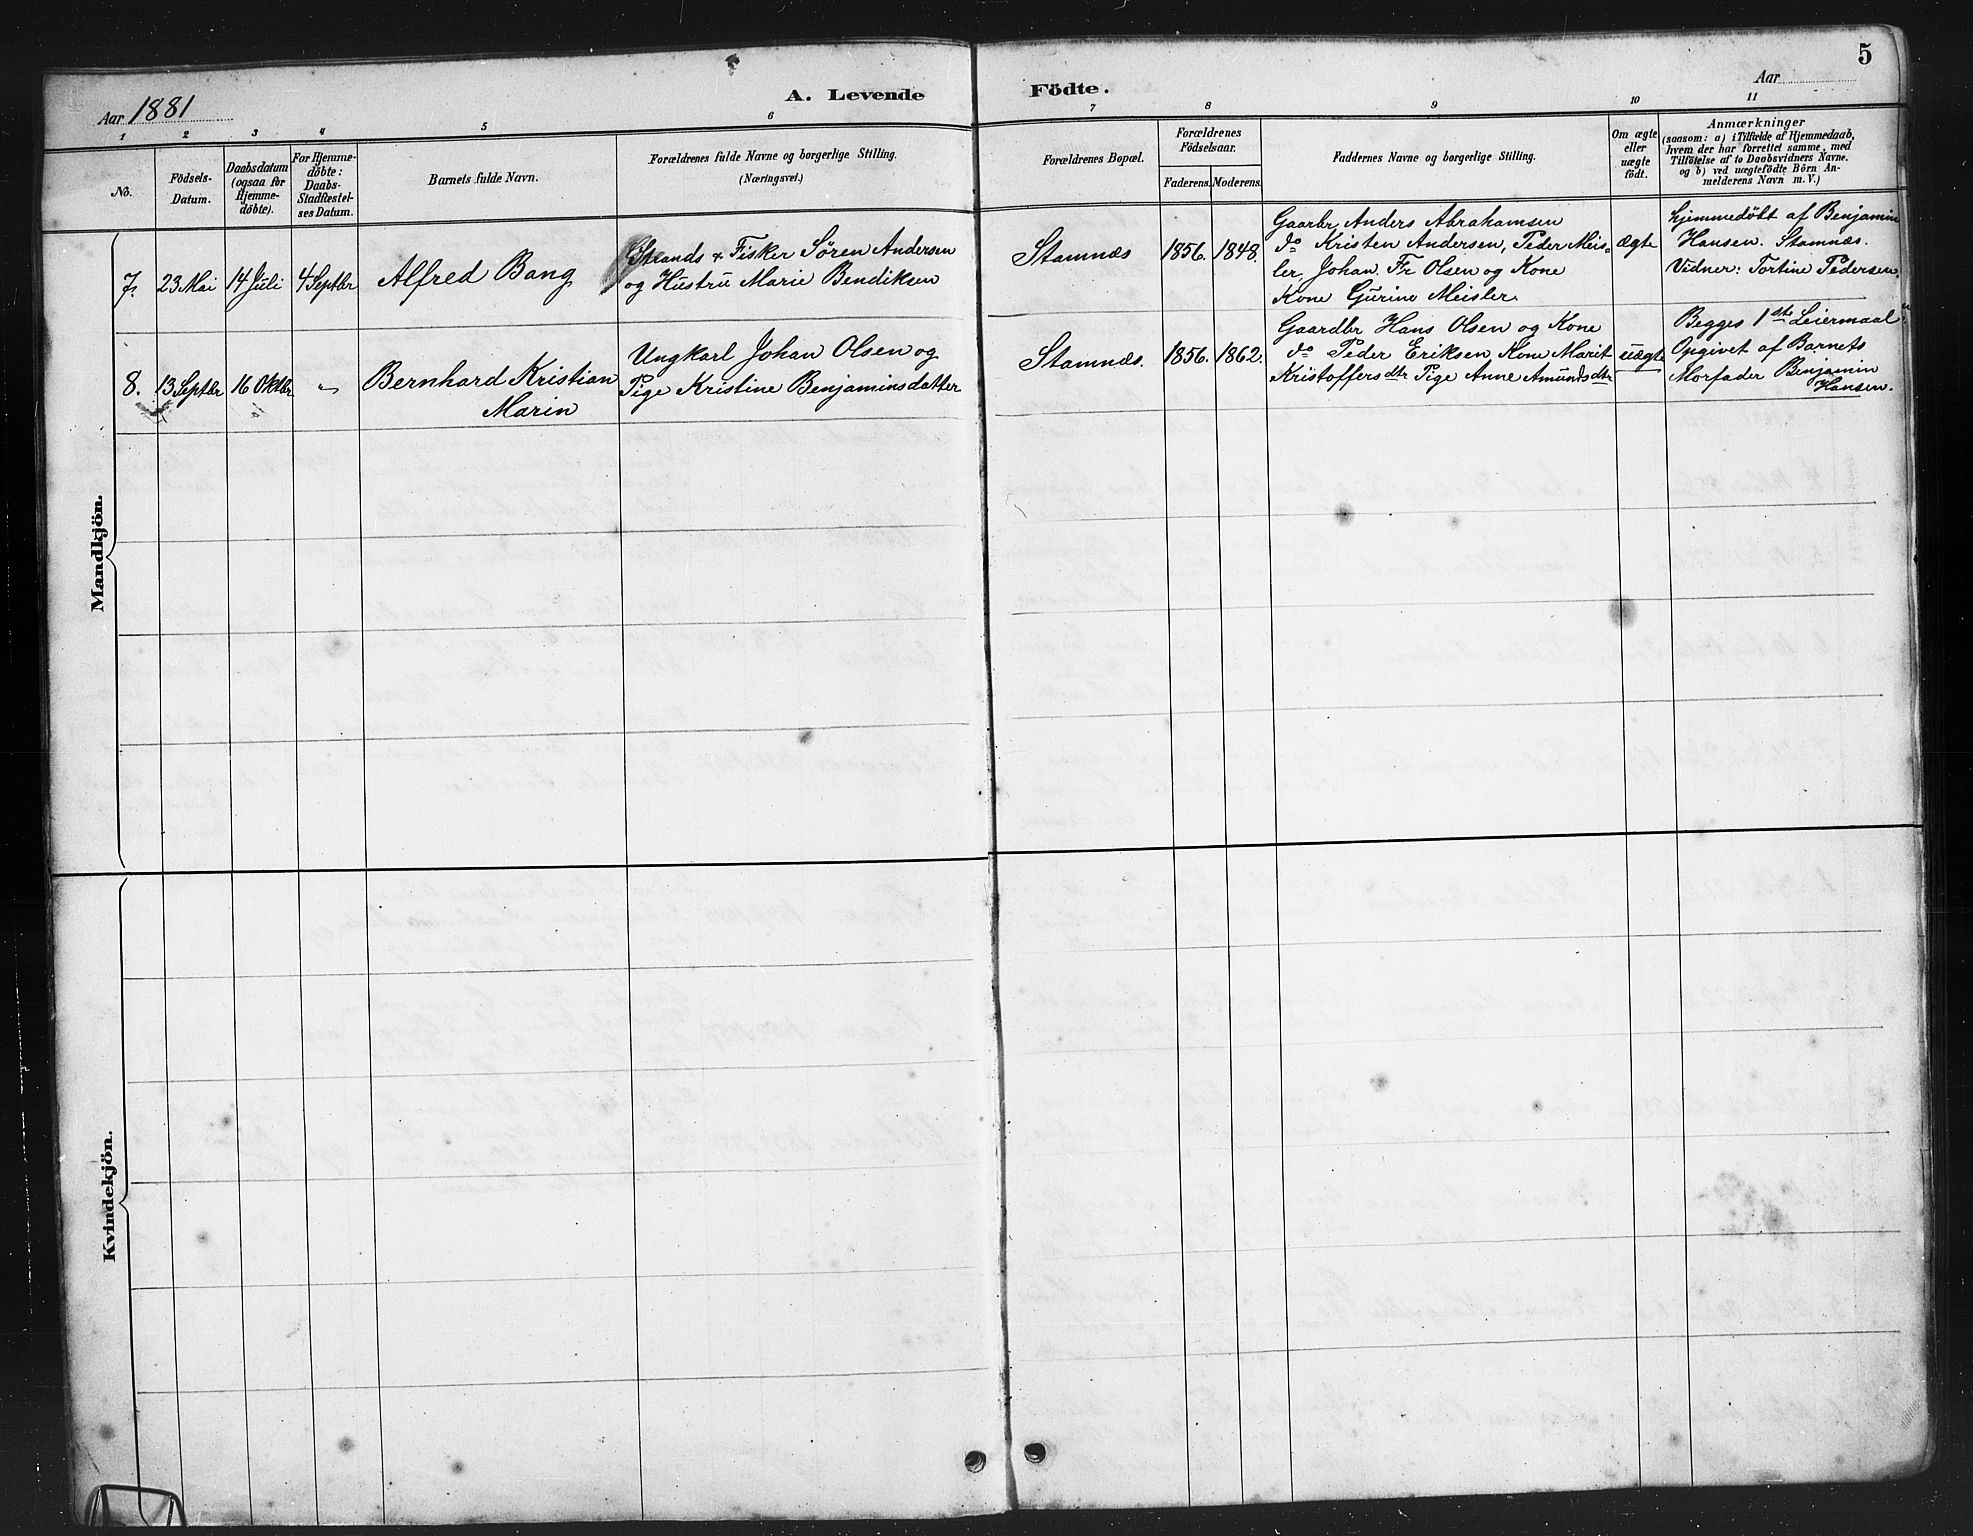 5
Aar 1881
A. Levende Födte.
Aar
1 2 3 4 5 6 7 8 9 10 11
No.
Födsels-
Datum.
Daabsdatum
(ogsaa for
Hjemme-
döbte).
For Hjemme-
döbte:
Daabs-
Stadfæstel-
ses Datum.
Barnets fulde Navn.
Forældrenes fulde Navne og borgerlige Stilling.
(Næringsvei.)
Forældrenes Bopæl.
Forældrenes
Födselsaar.
Faderens. Moderens.
Faddernes Navne og borgerlige Stilling.
Om ægte
eller
uægte
födt.
Anmærkninger
(saasom: a) i Tilfælde af Hjemmedaab,
hvem der har forrettet samme, med
Tilföielse af to Daabsvidners Navne.
og b) ved uægtefödte Börn An-
melderens Navn m. V.)
Mandkjön.
7. 23 Mai 14 Juli 4 Septbr
Alfred Bang
Strands & Fisker Sören Andersen
og Hustru Marie Bendiksen
Stamnæs 1856. 1848.
Gaarbr Anders Abrahamsen
do Kristen Andersen, Peder Meis-
ler, Johan Fr Olsen og Kone
Kone Gurine Meisler.
ægte
hjemmedöbt af Benjamin
Hansen. Stamnæs.
Vidner: Tortine Pedersen.
8. 13 Septbr 16 Oktbr "
Bernhard Kristian
Marin
Ungkarl Johan Olsen og
Pige Kristine Benjaminsdatter
Stamnæs. 1856. 1862.
Gaardbr Hans Olsen og Kone
do Peder Eriksen Kone Marit
Kristoffersdtr Pige Anne Amundsdtr
uægte
Begges 1ste Leiermaal
Opgivet af Barnets
Morfader Benjamin
Hansen.
Kvindekjön.